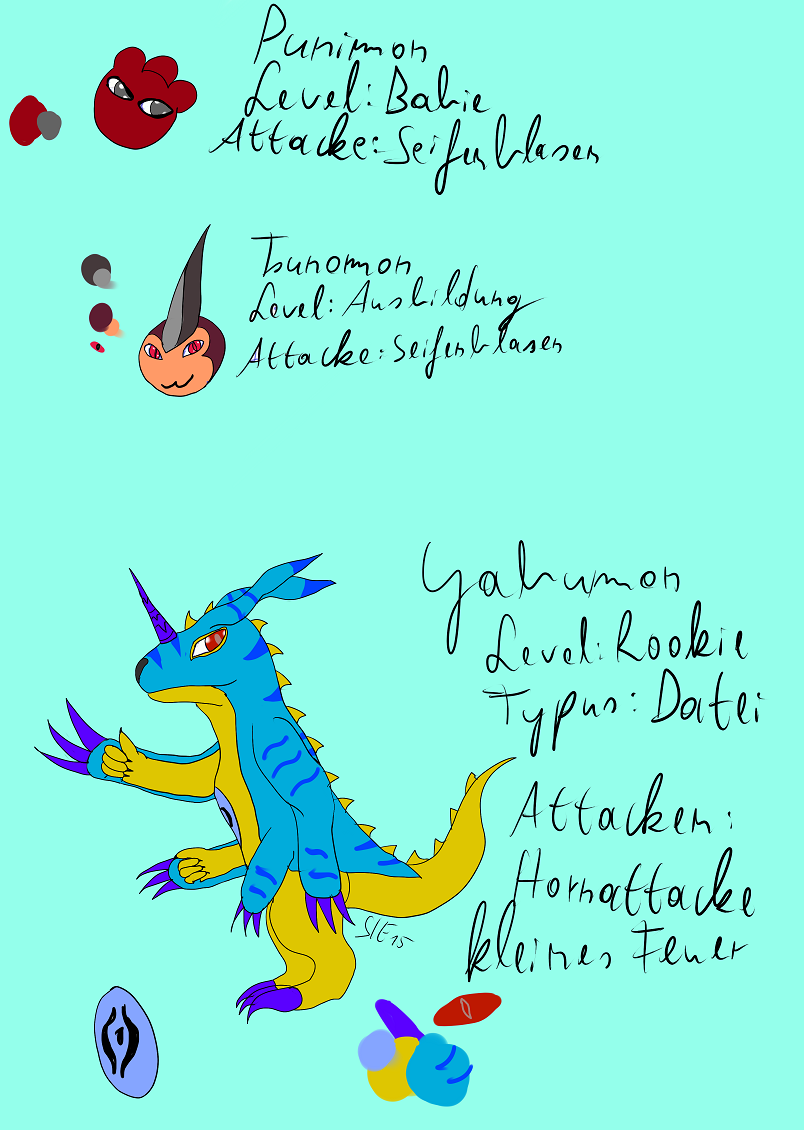 Punimon
Level: Babie
Attacke: Seifenblasen
Tsunomon
Level: Ausbildung
Attacke: Seifenblasen
Gabumon
Level: Rookie
Typus: Datei
Attacken:
Hornattacke
kleines Feuer